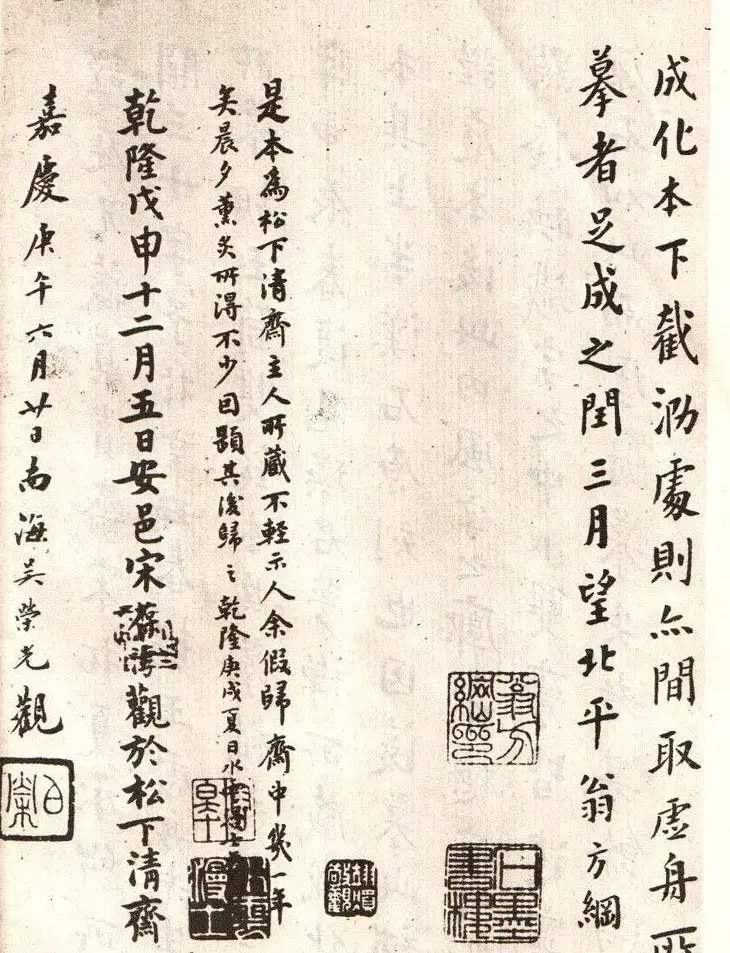 成化本下截泐處則亦間取虛舟
摹者足成之閏三月望北平翁方綱
翁方綱印
石墨書樓
是本為松下清齋主人所藏不輕示人余假歸齋中幾一年
矣晨夕薰炙所得不少因題其後歸之乾隆庚戌夏日水
乾隆戊申十二月五日安邑宋葆淳觀於松下清齋
嘉慶庚午六月廿日南海吳榮光觀
伯榮